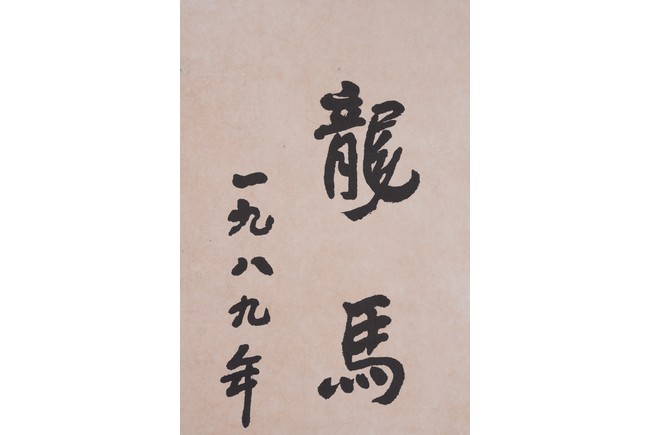 龍馬
一九八九年